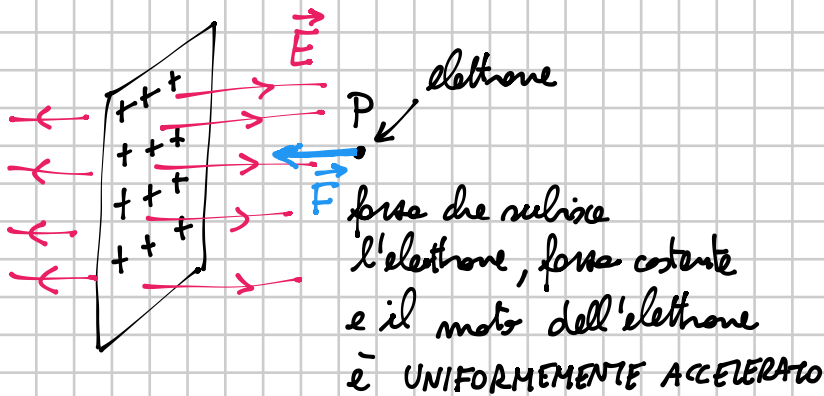 E
elettrone
P
F
forza che subisce
l'elettrone, forza costante
e il moto dell'elettrone
è UNIFORMEMENTE ACCELERATO
+ + +
+ + +
+ + +
+ + +